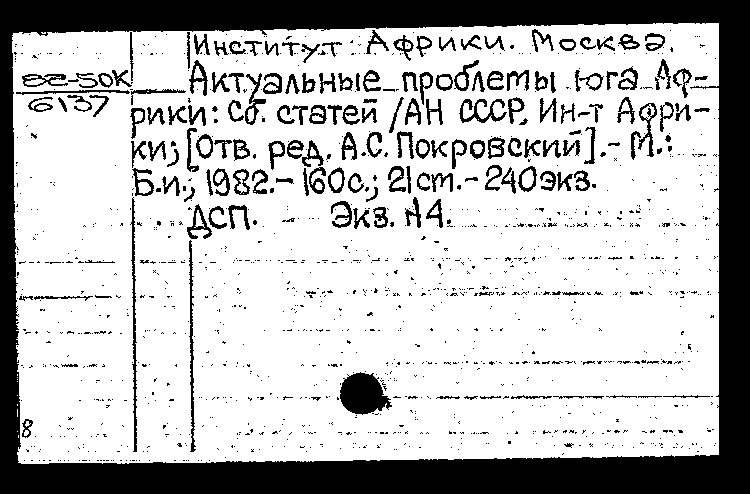 Институт Африки. Москва.
Актуальные проблемы юга Аф-
6137
рики: Сб. статей /АН СССР, Ин-т Афри-
ки; [Отв. ред. А.С. Покровский].- М.:
Б.и., 1982.- 160с.; 21см.- 240экз.
ДСП. Экз. №4.
8